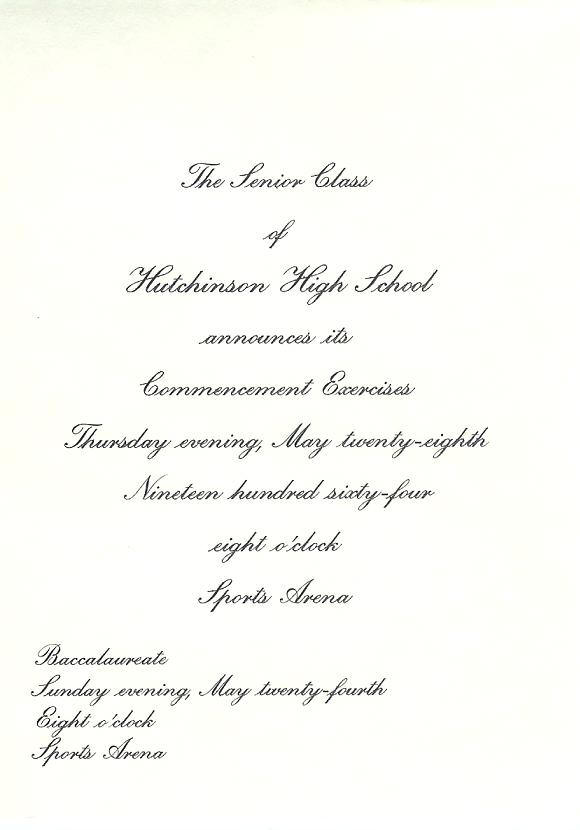 The Senior Class
of
Hutchinson High School
announces its
Commencement Exercises
Thursday evening, May twenty-eighth
Nineteen hundred sixty-four
eight o'clock
Sports Arena
Baccalaureate
Sunday evening, May twenty-fourth
Eight o'clock
Sports Arena